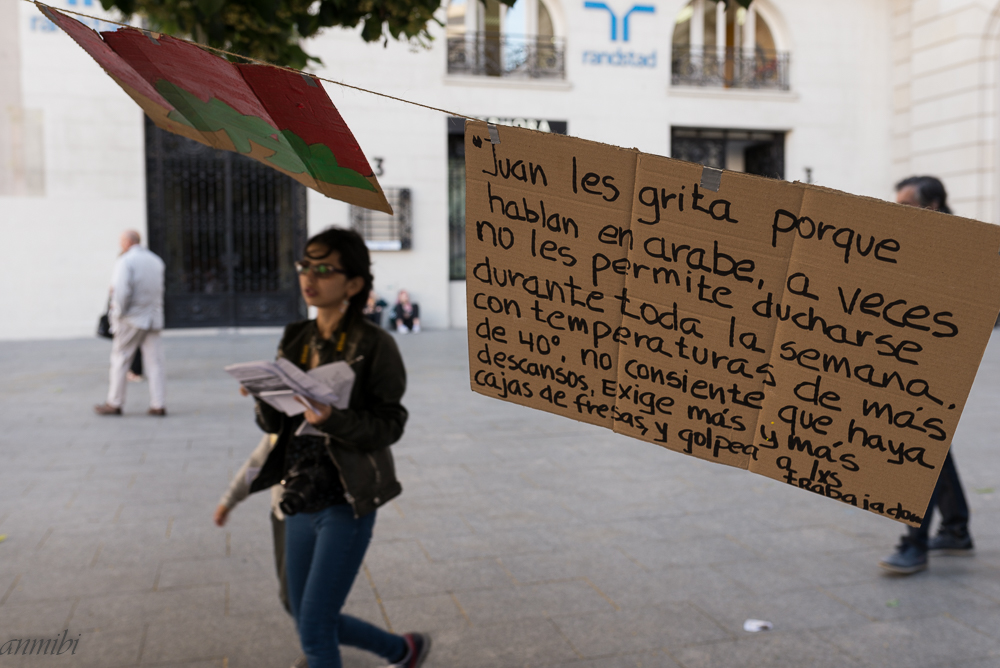 randstad
"Juan les grita porque
hablan en arabe, a veces
no les permite ducharse
durante toda la semana.
con temperaturas de más
de 40º, no consiente que haya
descansos. Exige más y más
cajas de fresas, y golpea a lxs
trabajadorxs
3
anmibi